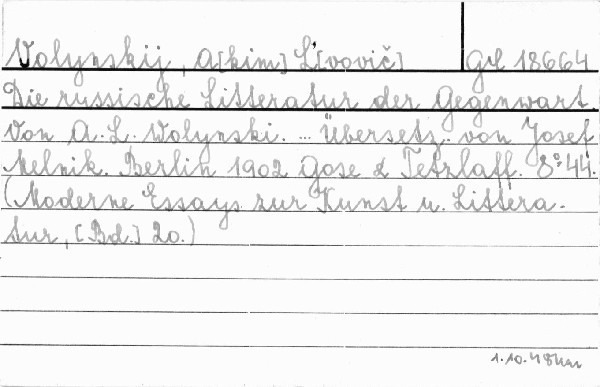 Volynskij, A[kim] L'[vovič] Gd 18664
Die russische Litteratur der Gegenwart.
Von A. L. Wolynski. ... Übersetz. von Josef
Melnik. Berlin 1902 Gose & Tetzlaff. 8° 44.
(Moderne Essays zur Kunst u. Littera-
tur, [Bd.] 20.)
1.10.48